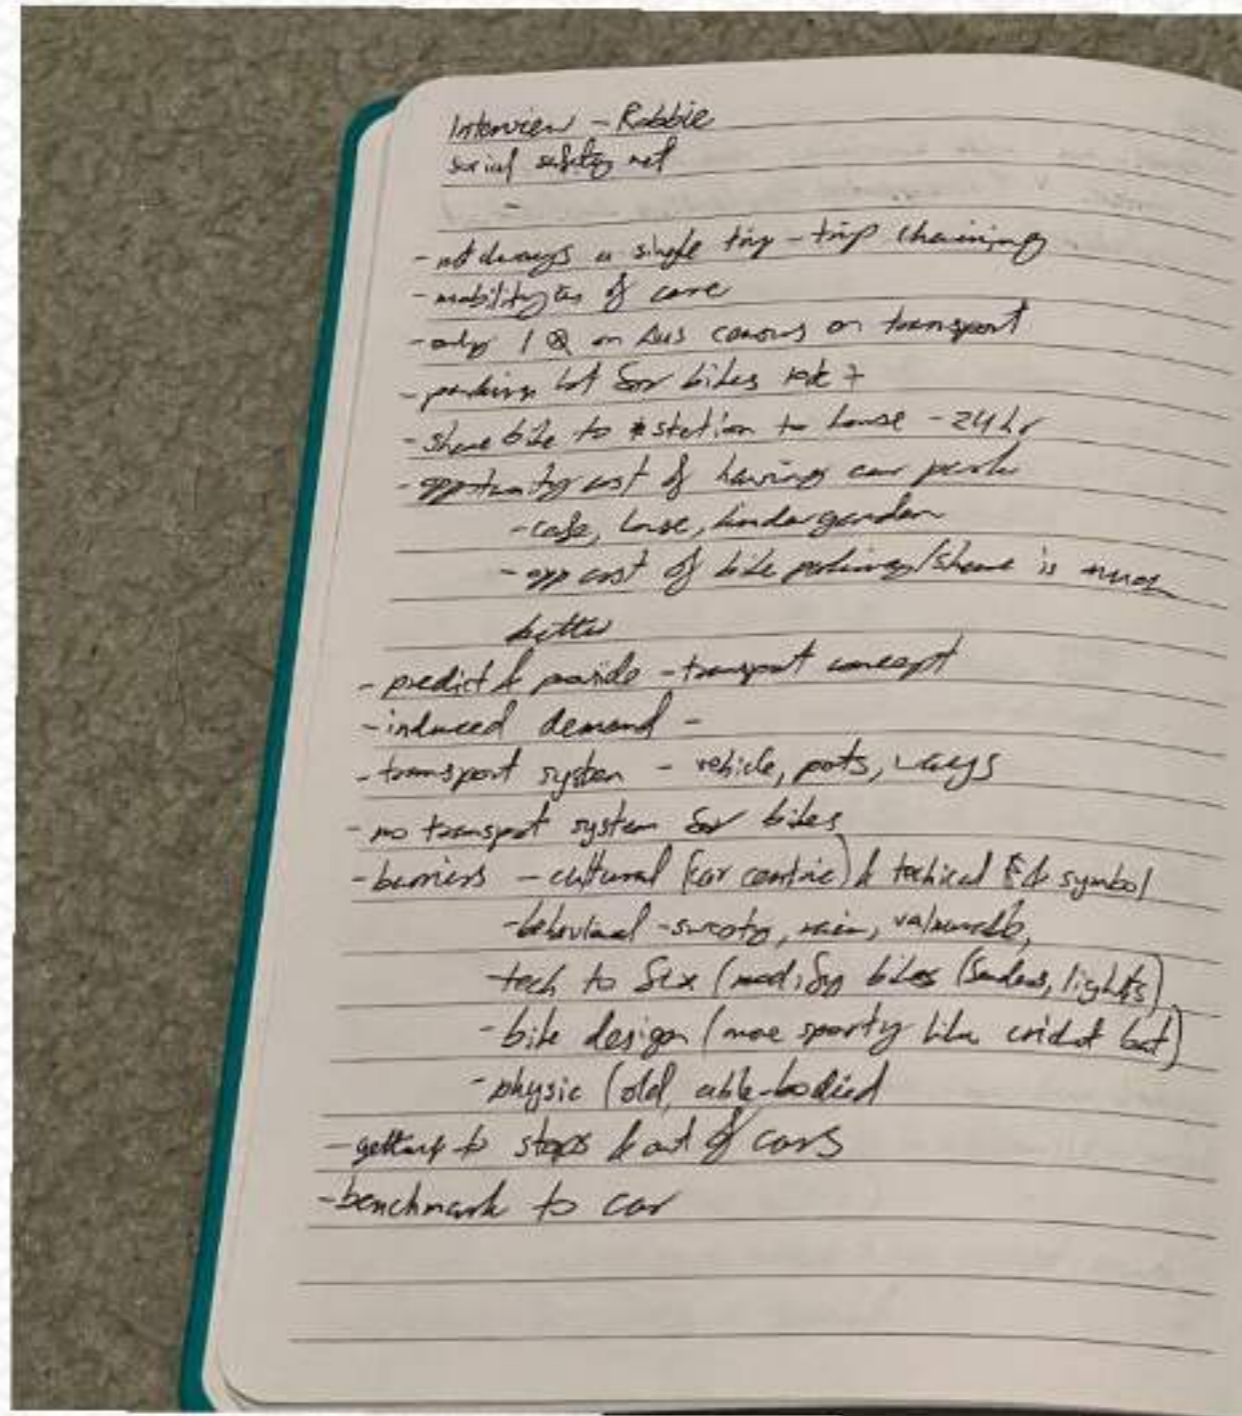 Interview - Robbie
social safety net
-
- not always a single trip - trip chaining
- mobility of care
- only 1 Q on Aus census on transport
- parking lot for bikes
- share bike to station to house - 24 hr
- opportunity cost of having car park
- cafe, house, kindergarden
- opp cost of bike parking/share is much
better
- predict & provide - transport concept
- induced demand -
- transport system - vehicle, ports, ways
- no transport system for bikes
- barriers - cultural (car centric) & techical symbol
- behavioural - sweaty, rain,
tech to fix (modify bikes (fenders, lights)
- bike design (more sporty like cricket bat)
- physic (old, able-bodied
- getting to stops & out of cars
- benchmark to car